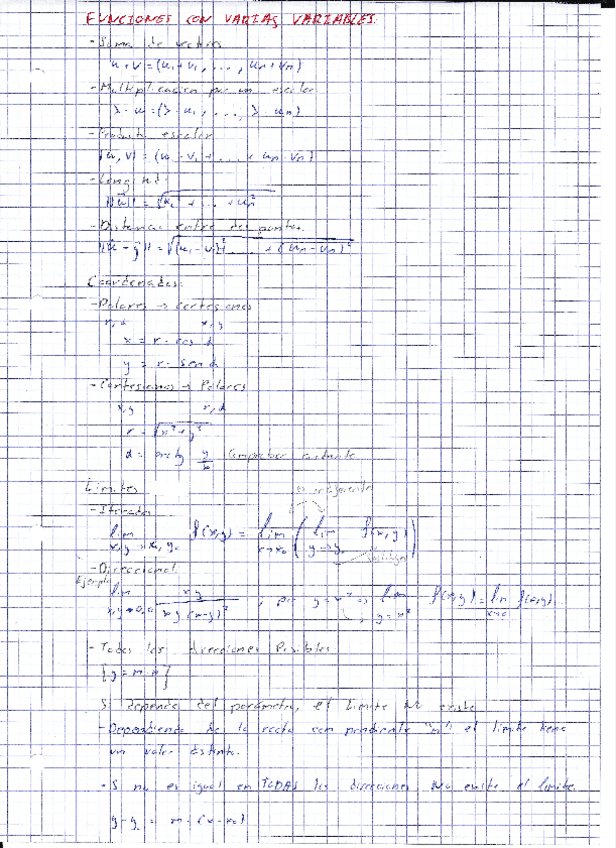 FUNCIONES CON VARIAS VARIABLES.
- Suma de vectores
u+v = (u₁+v₁, ..., uₙ+vₙ)
- Multiplicacion por un escalar
λ·u = (λ·u₁, ..., λ·uₙ)
- Producto escalar
(u,v) = (u₁·v₁ + ... + uₙ·vₙ)
- Longitud:
- Distancia entre dos puntos.
Coordenadas:
- Polares → cartesianas
r, α x, y
x = r·cos α
y = r·sen α
- Cartesianas → Polares
x, y r, α
r = √(x²+y²)
α = arctg y/x Comprobar cuadrante
Limites
- Iterados
lim x,y→x₀,y₀ f(x,y) = lim x→x₀ ( lim y→y₀ f(x,y) )
- Direccional
Ejemplo
- Todas las direcciones Posibles
[y = m·x]
Si depende del parámetro, el limite No existe
- Dependiendo de la recta con pendiente "m" el limite tiene
un valor distinto.
- Si no es igual en TODAS las direcciones No existe el limite.
y-y₀ = m·(x-x₀)